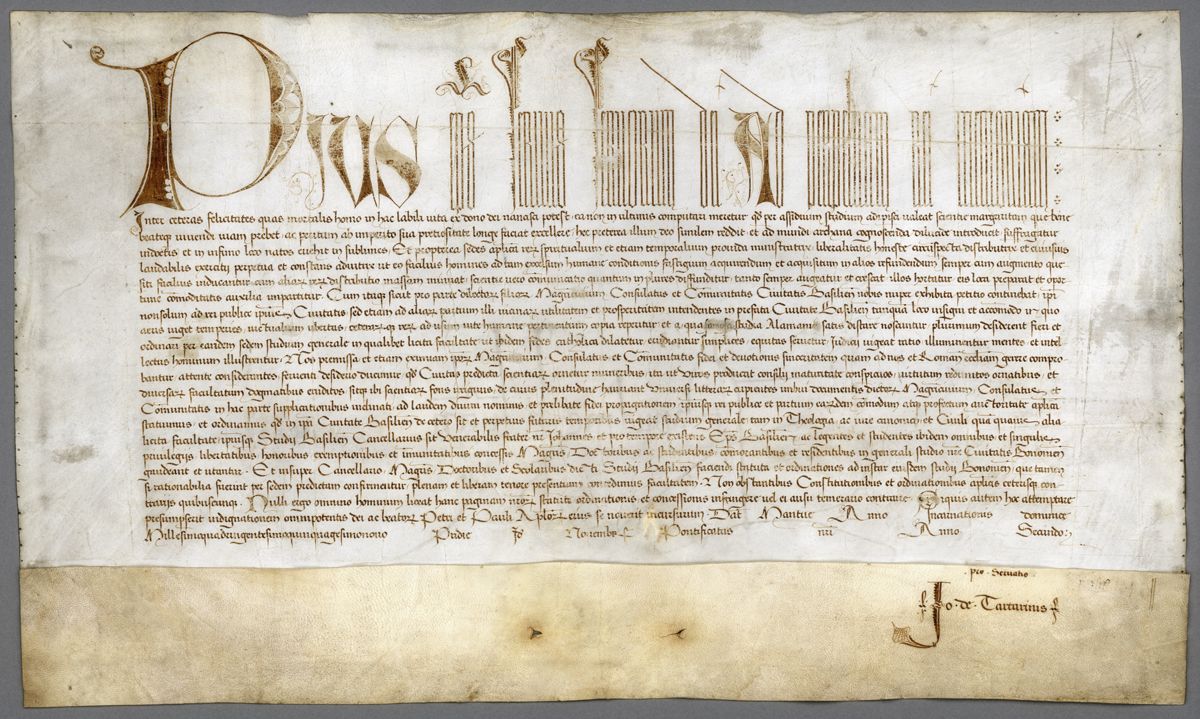 Pius
Inter ceteras felicitates quas mortalis homo in hac labili vita ex dono dei nancisci potest ea non in ultimis computari meretur qd per assiduum studium adipisci valeat scientie margaritam que bene
beateqz vivendi viam prebet ac peritum ab imperito sua pretiositate longe faciat excellere hec preterea illum deo similem reddit et ad mundi archana cognoscenda dilucide introducit suffragatur
indoctis et in infimo loco natos evehit in sublimes Et propterea sedes aplica rerz spiritualium et etiam temporalium provida ministratrix liberalitatis honeste circumspecta distributrix et cuiusvis
laudabilis exercitij perpetua et constans adiutrix ut eo facilius homines ad tam excelsum humane conditionis fastigium acquirendum et acquisitum in alios refundendum semper cum augmento que
siti facilius inducantur cum aliarz rerz distributio massam minuat scientie vero communicatio quantum in plures diffunditur tanto semper augeatur et crescat illos hortatur eis loca preparat et opor
tune comoditatis auxilia impartitur Cum itaqz sicut pro parte dilectorz filiorz Magistrorum Consulatus et Comunitatis Civitatis Basilien nobis nuper exhibita petitio continebat ipi
non solum ad rei publice ipius Civitatis sed etiam ad aliarz partium illi vicinarz utilitatem et prosperitatem intendentes in prefata Civitate Basilien tanqua loco insigni et acomodo in quo
aeris viget temperies victualium ubertas ceterarqz rerz ad usum vite humane pertinentium copia reperitur et a qua studia Alamanie satis distare noscuntur plurimum desiderent fieri et
ordinari per eandem sedem studium generale in qualibet licita facultate ut ibidem fides catholica dilatetur erudiantur simplices equitas servetur Judicij vigeat ratio illuminentur mentes et intel
lectus hominum illustrentur Nos premissa et etiam eximiam iporz Consulatus et Comunitatis fidei et devotionis sinceritatem quam ad nos et Roman ecclam gerere compro
bantur attente considerantes ferventi desiderio ducimur qd Civitas predicta scientiarz ornetur muneribus ita ut viros producat consilij maturitate conspicuos virtutum redimitos ornatibus et
diversarz facultatum dogmatibus eruditos sitqz ibi scientiarz fons irriguus de cuius plenitudine hauriant universi litterarz cupientes imbui documentis dictorz Consulatus et
Comunitatis in hac parte supplicationibus inclinati ad laudem divini nominis et prelibate fidei propagationem ipiusqz rei publice et partium earundem comodum atqz profectum auctoritate aplica
statuimus et ordinamus qd in ipa Civitate Basilien de cetero sit et perpetuis futuris temporibus vigeat studium generale tam in Theologia ac iure canonico et Civili qua quavis alia
licita facultate ipiusqz Studij Basilien Cancellarius sit Venerabilis frater nr Johannes et pro tempore existens Eps Basilien ac legentes et studentes ibidem omnibus et singulis
privilegijs libertatibus honoribus exemptionibus et immunitatibus concessis Magris Doctoribus ac studentibus comorantibus et residentibus in generali studio nre Civitatis Bononien
gaudeant et utantur Et insuper Cancellario Magris Doctoribus et Scolaribus dicti Studij Basilien faciendi statuta et ordinationes ad instar eiusdem studij Bononien que tamen
si rationabilia fuerint per sedem predictam confirmentur plenam et liberam tenore presentium concedimus facultatem Non obstantibus Constitutionibus et ordinationibus aplicis ceterisqz con
trarijs quibuscunqz Nulli ergo omnino hominum liceat hanc paginam nrorz statuti ordinationis et concessionis infringere vel ei ausu temerario contraire Siquis autem hoc attemptare
presumpserit indignationem omnipotentis dei ac beatorz Petri et Pauli Aplorz eius se noverit incursurum Dat Mantue Anno Incarnationis dominice
Millesimoquadringentesimoquinquagesimonono Pridie Id Novembr Pontificatus nri Anno Secundo
pro Servatio
Jo de Tartarinis